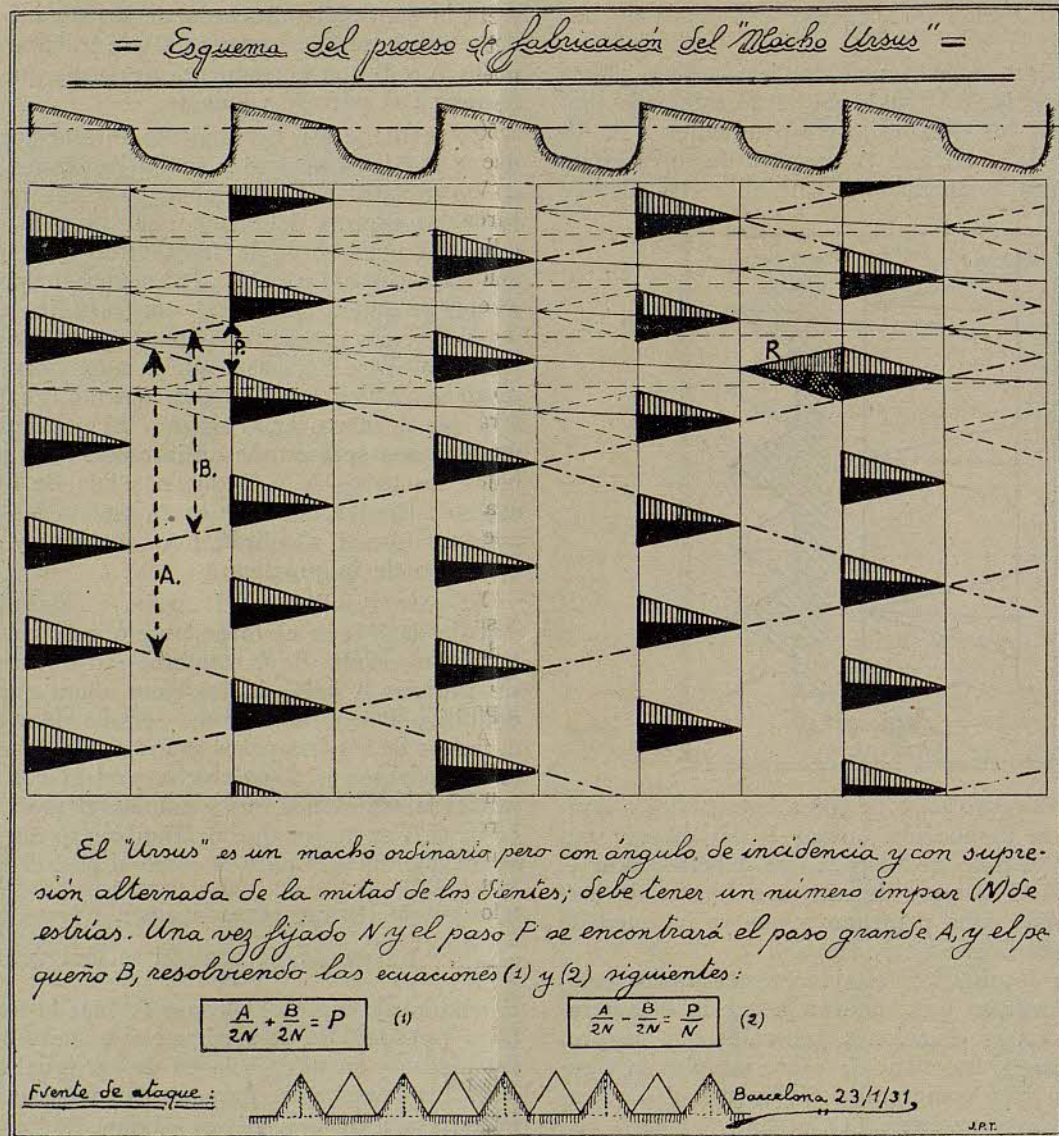 = Esquema del proceso de fabricación del "Macho Ursus" =
P.
R
B.
A.
El "Ursus" es un macho ordinario pero con ángulo de incidencia y con supre-
sión alternada de la mitad de los dientes; debe tener un número impar (N) de
estrías. Una vez fijado N y el paso P se encontrará el paso grande A, y el pe-
queño B, resolviendo las ecuaciones (1) y (2) siguientes:
A/2N + B/2N = P (1) A/2N - B/2N = P/N (2)
Frente de ataque:
Barcelona 23/1/31,
J.P.T.